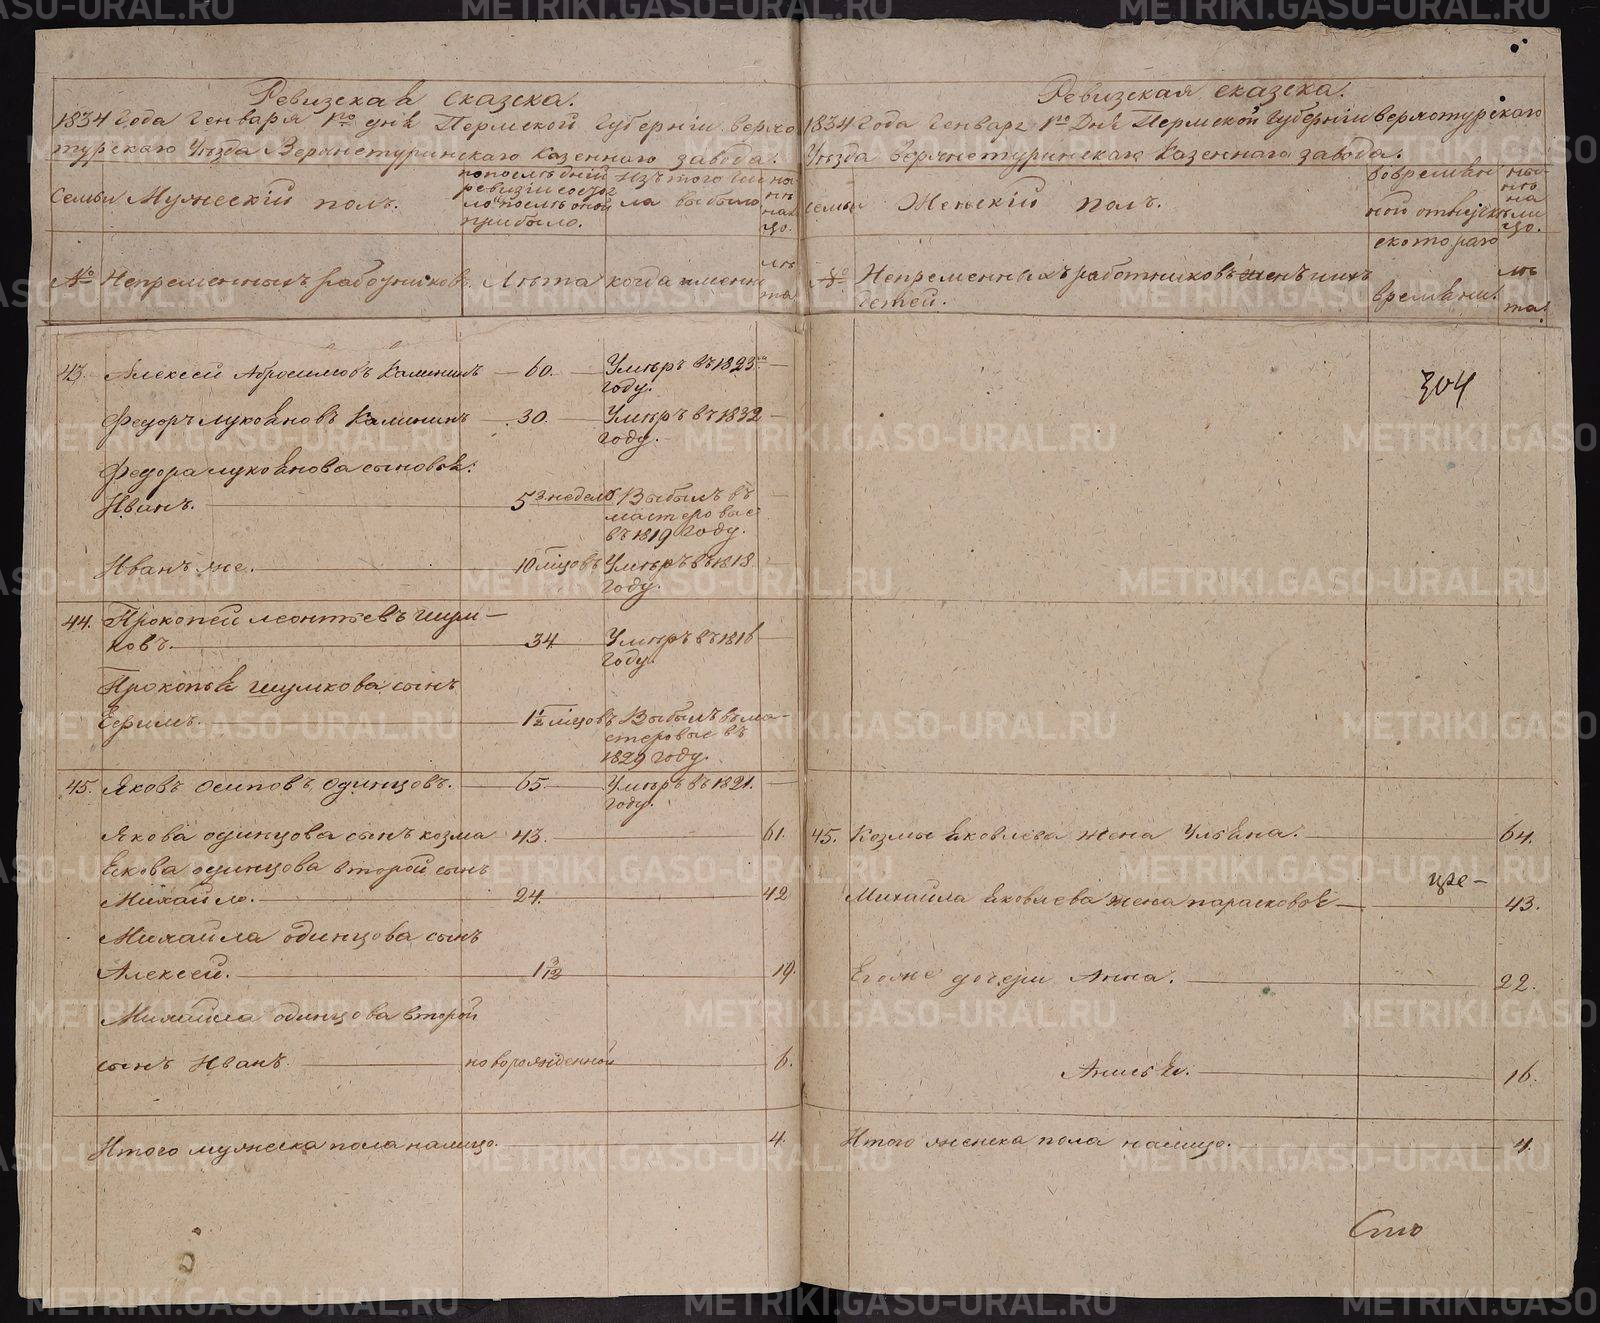 METRIKI.GASO-URAL.RU
Ревизская сказска.
1834 года Генваря 1го дня Пермской Губернiи верхо
турскаго Уѣзда Верхнетуринскаго казеннаго завода.
Семьи
Мужескiй полъ.
по последнiй
ревизiи состоя
ло и после оной
прибыло.
Изъ того чи
сла выбыло
ны
нѣ
на
ли
цо.
№
Непременныхъ работниковъ.
Лѣта
когда именно
лѣ
та
43.
Алексей Абросимовъ Калининъ
60.
Умеръ въ 1823мъ
году.
Федоръ Лукояновъ Калининъ
30.
Умеръ въ 1832
году.
Федора Лукоянова сыновья:
Иванъ.
5 3/недель
Выбылъ въ
мастеровые
въ 1819 году.
Иванъ же.
10 мцовъ
Умеръ въ 1818
году.
44.
Прокопей Леонтьевъ Шум-
ковъ.
34.
Умеръ въ 1816
году.
Прокопья Шумкова сынъ
Ефимъ.
1 1/2 мцовъ
Выбылъ въ ма-
стеровые въ
1829 году.
45.
Яковъ Осиповъ Одинцовъ.
65.
Умеръ въ 1821.
году.
Якова Одинцова сынъ Козма
43.
61.
Якова Одинцова второй сынъ
Михайло.
24.
42
Михайла Одинцова сынъ
Алексей.
1 3/12
19.
Михайла Одинцова второй
сынъ Иванъ.
новорожденной
6.
Итого мужеска пола налицо.
4.
Ревизская сказска.
1834 года Генваря 1го Дня Пермской Губернiи верхотурскаго
Уѣзда Верхнетуринскаго казеннаго завода.
семьи
Женскiй полъ.
во времян
ной отлучк
ны
нѣ
на
ли
цо.
№
Непременныхъ работниковъ женъ и ихъ
детей.
с котораго
времяни.
лѣ
та.
304
45.
Козмы Яковлева жена Ульяна.
64.
Михайла Яковлева жена Парасковья
43.
Его же дочери Анна.
22.
Анисья.
16.
Итого женска пола налицо.
4.